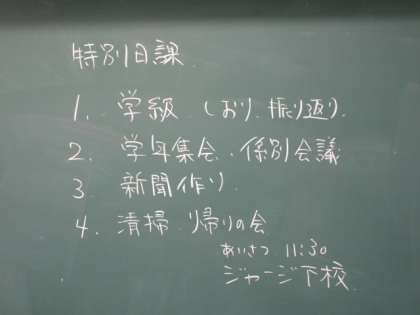 特別日課
1. 学級 (しおり、振り返り)
2. 学年集会・係別会議
3 新聞作り
4. 清掃・帰りの会
あいさつ 11:30
ジャージ下校